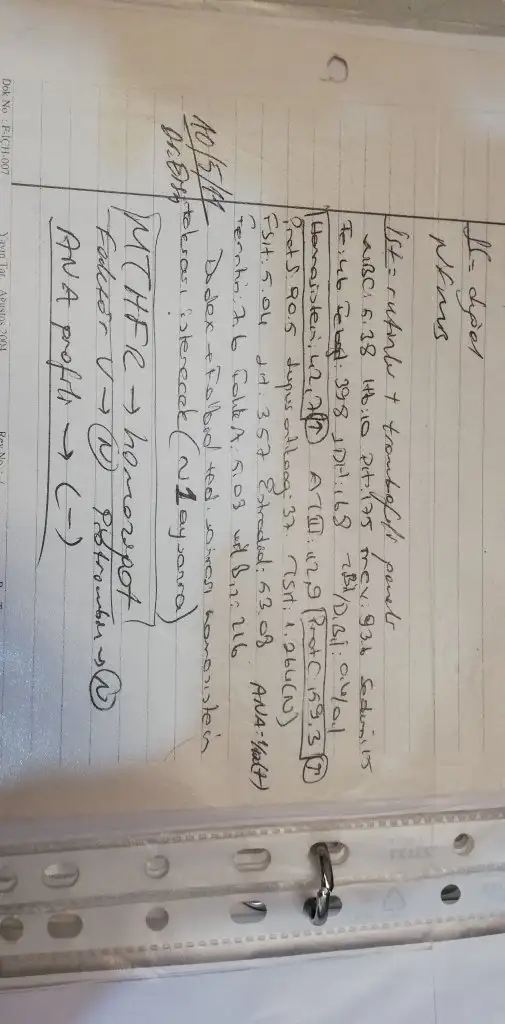 NKMS
İst= rutinler + trombofili paneli
WBC: 5.38 Hb: 10 Plt: 175 mcv: 93.6 Sedim: 15
Fe: 46 Febağ: 398 LDH: 168 T.Bil/D.Bil: 0.4/0.1
Homosistein: 42.7 ↑ ATIII: 429 Prot C: 159.3 ↑
Prot S: 90.5 Lupus antikoag: 37 TSH: 1.264 (N)
FSH: 5.04 LH: 3.57 Estradiol: 53.08 ANA=
Ferritin: 7.6 Folik A: 5.03 vit B12: 216
10/5/11 Dodex + Folbiol ted. sonrası homosistein
istenecek (~1 ay sonra)
MTHFR → homozigot
Faktör V → (N) Protrombin → (N)
ANA profili → (-)
Dok No : F-İÇH-007 Yayın Tar. Ağustos 2004 Rev No :